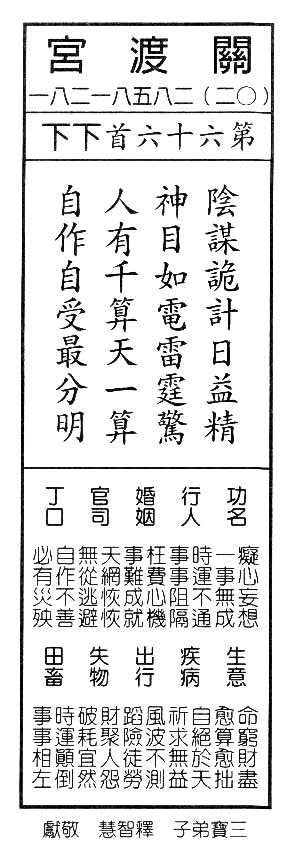 關渡宮
（〇二）二八五八一二八一
第六十六首下下
陰謀詭計日益精
神目如電雷霆驚
人有千算天一算
自作自受最分明
功名
癡心妄想
一事無成
行人
時運不通
事事阻隔
婚姻
枉費心機
事難成就
官司
天網恢恢
無從逃避
丁口
自作不善
必有災殃
生意
命窮財盡
愈算愈拙
疾病
自絕於天
祈求無益
出行
風波不測
蹈險徒勞
失物
財聚人怨
破耗宜然
田畜
時運顛倒
事事相左
三寶弟子 釋智慧 敬獻